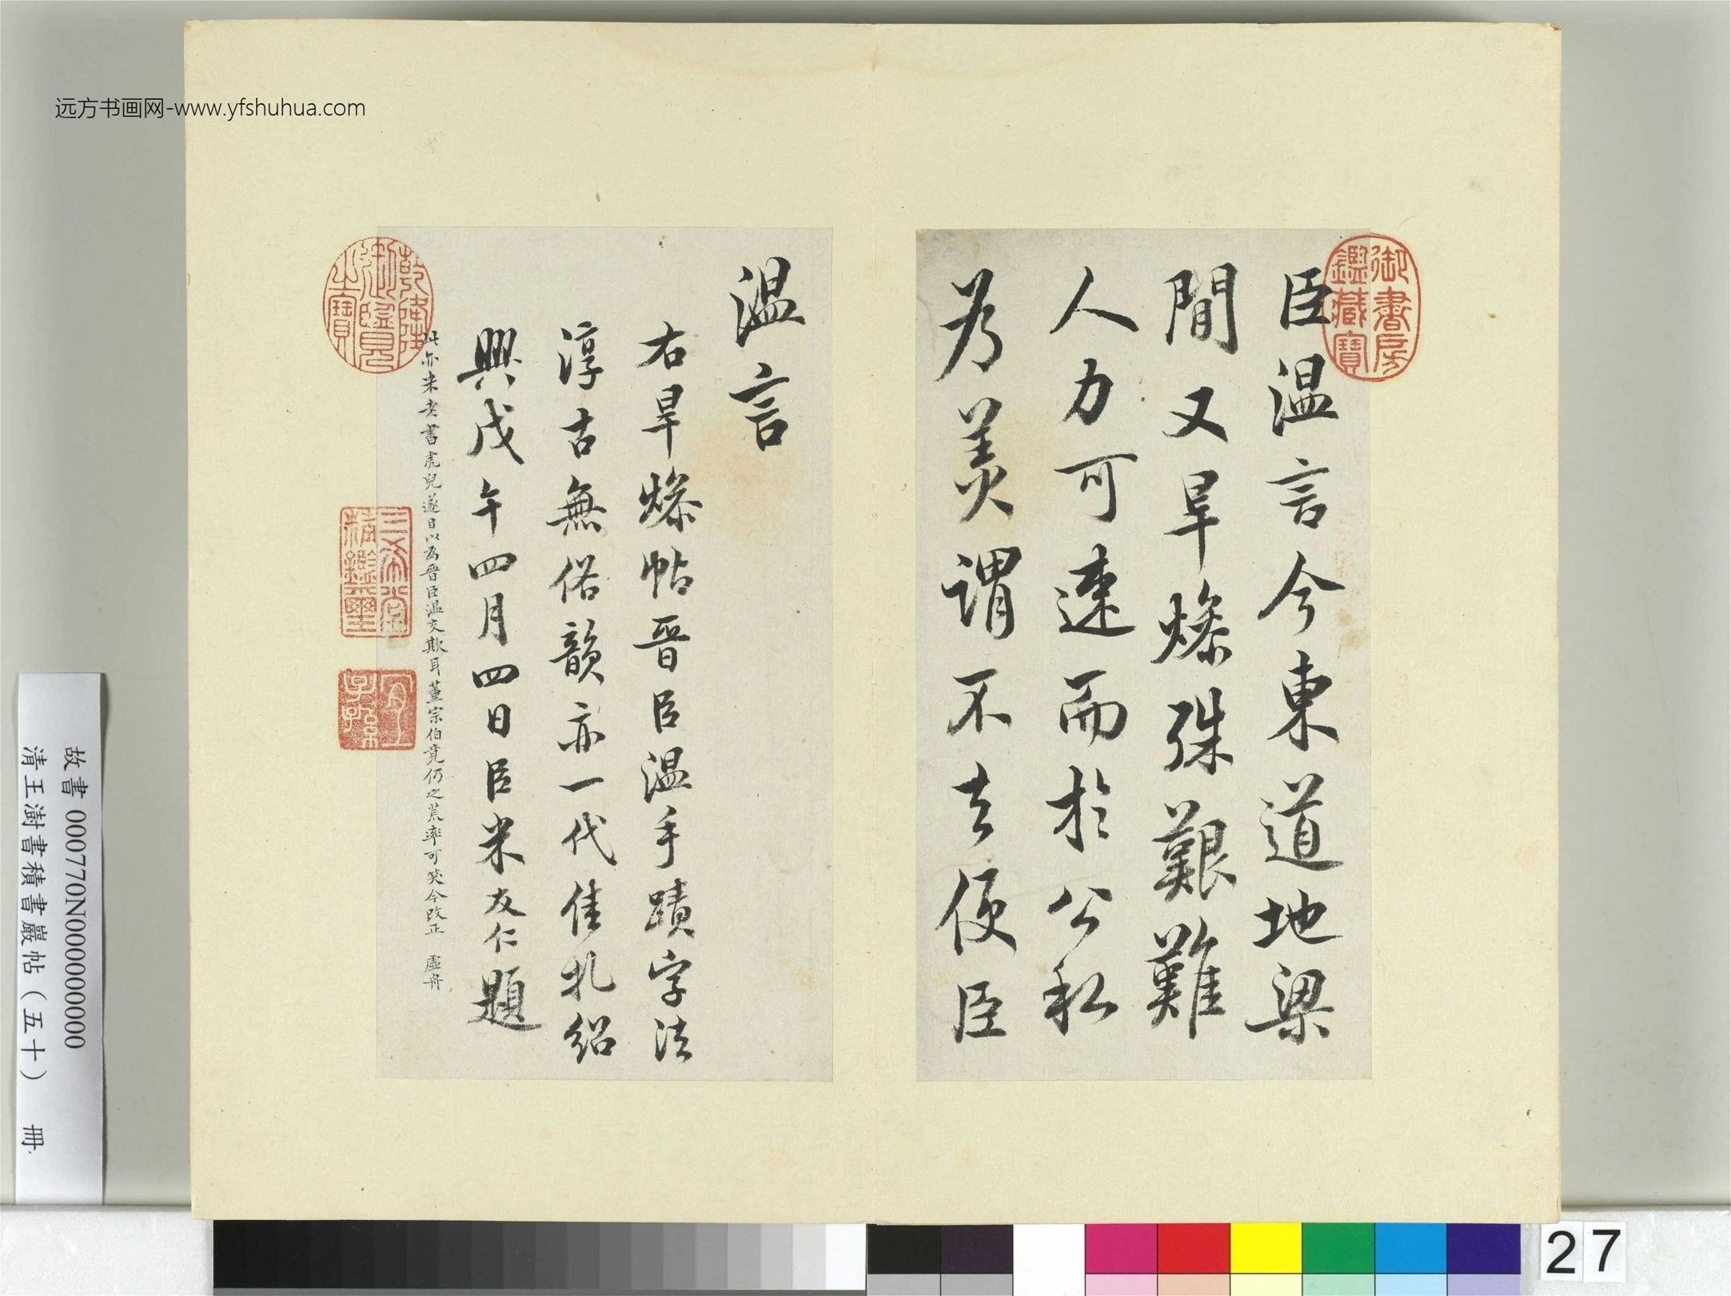 远方书画网-www.yfshuhua.com
御書房
鑑藏寶
臣温言今東道地梁
間又旱燥殊艱難
人力可速而於公私
为羙謂不去便臣
温言
右旱燥帖晉臣温手蹟字法
淳古無俗韻亦一代佳札紹
興戊午四月四日臣米友仁題
此亦米老書虎兒遂目以为晉臣温文欺耳董宗伯竟仍之荒率可笑今改正 虛舟
乾隆
御覽
之寶
三希堂
精鑑璽
宜子孫
故書 000770N000000000
清王澍書積書巖帖(五十) 冊
27